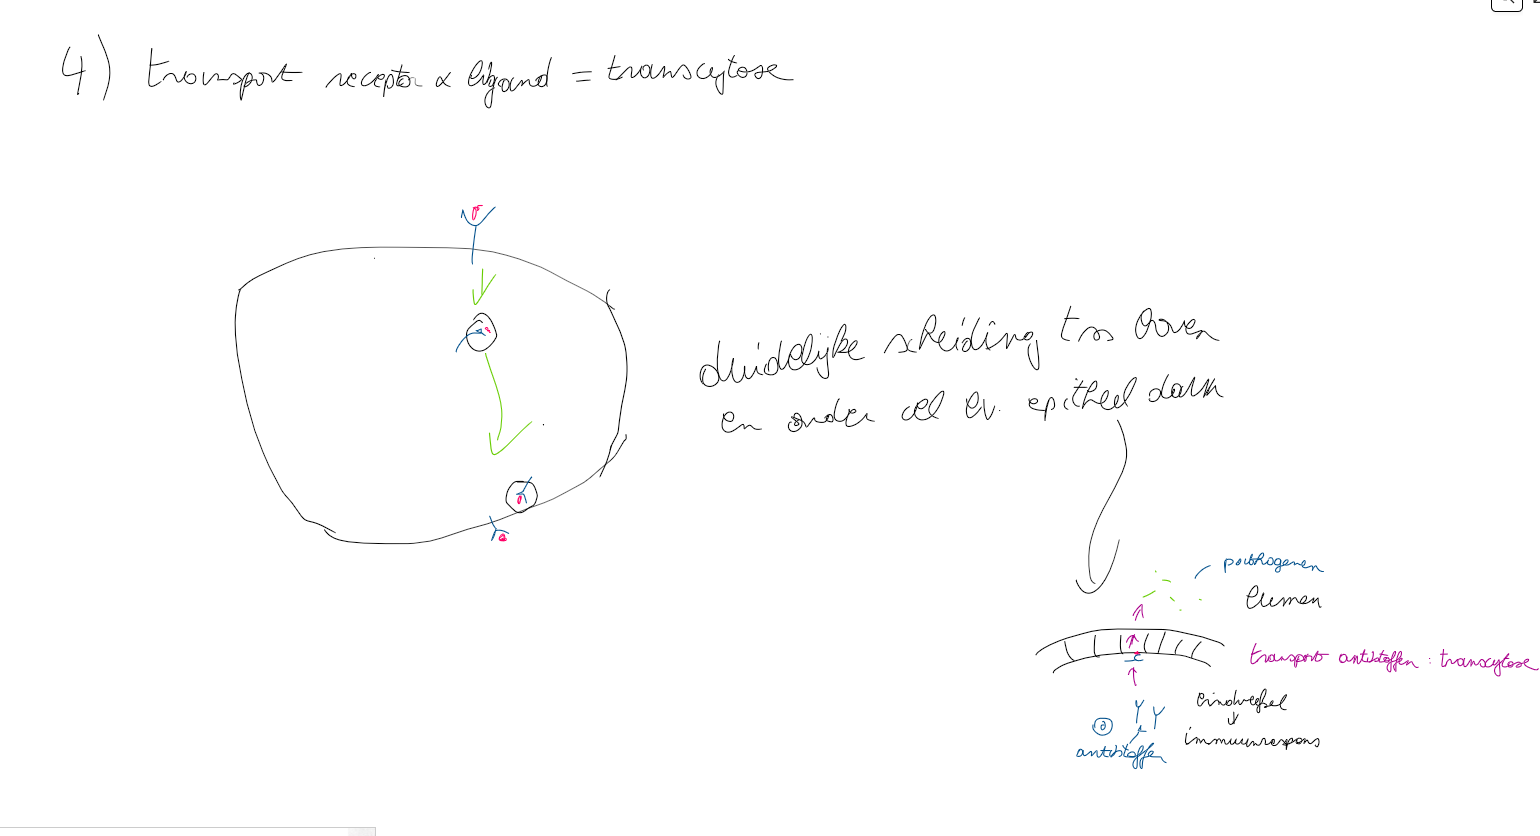 4) transport receptor & ligand = transcytose
duidelijke scheiding tss boven
en onder cel bv. epitheel darm
pathogenen
lumen
transport antistoffen : transcytose
bindweefsel
↓
immuunrespons
antistoffen